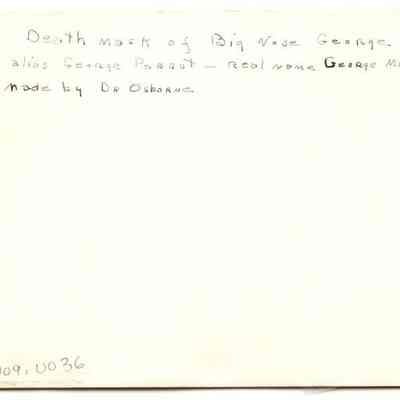 Death mask of Big Nose George
alias George Parrot – real name George M
made by Dr Osborne
109, U036